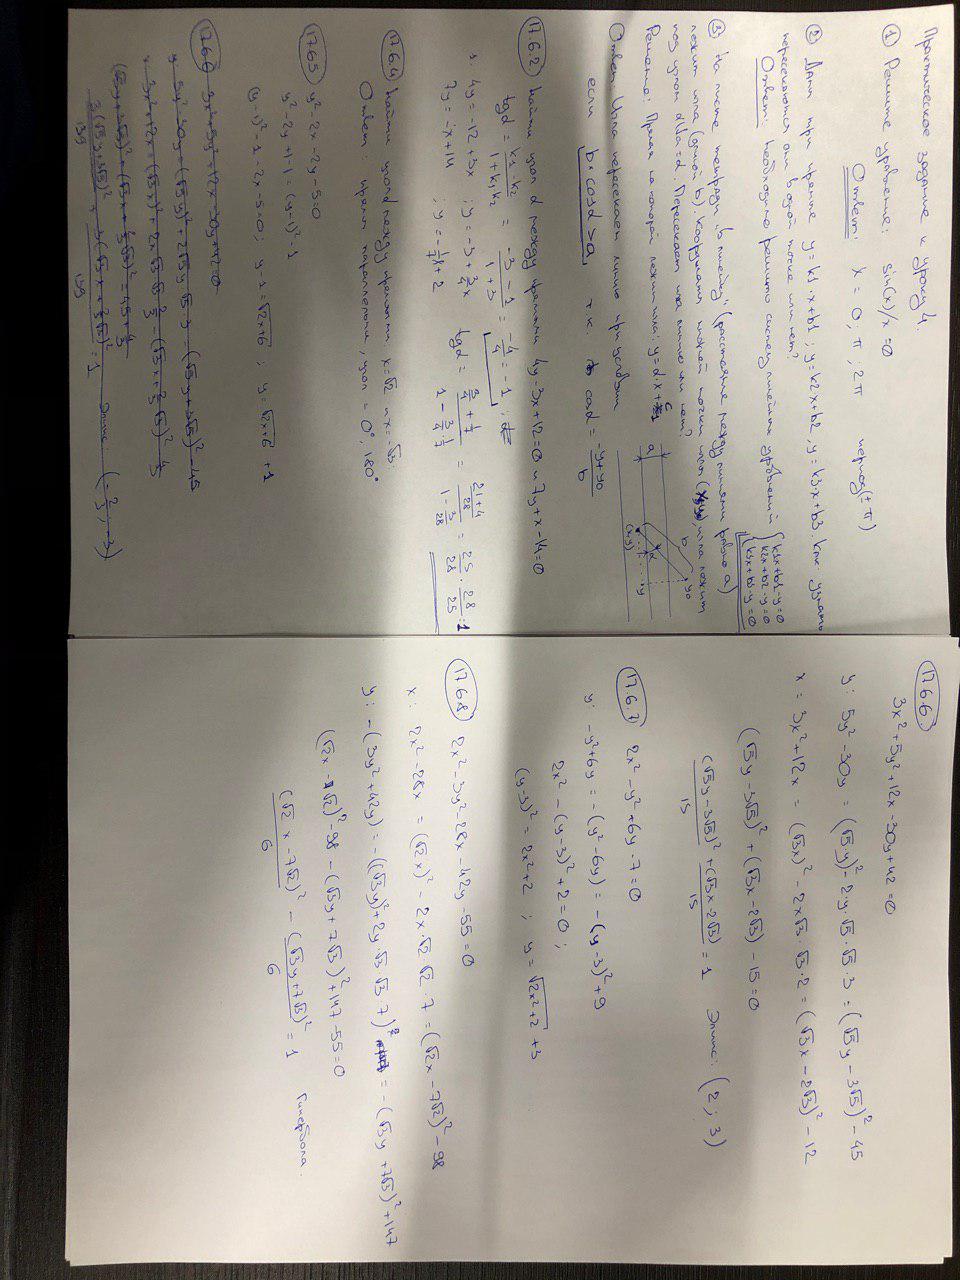 Практическое задание к уроку 4.
① Решите уравнение: sin(x)/x = 0
Ответ: x = 0; π; 2π период (±π)
② Даны три прямые y = k1·x + b1; y = k2x + b2, y = k3·x + b3. Как узнать
пересекаются они в одной точке или нет?
Ответ: Необходимо решить систему линейных уравнений { k1x + b1 - y = 0
k2x + b2 - y = 0
k3x + b3 - y = 0
③ На листе тетради "в линейку" (расстояние между линиями равно a)
лежит игла (длиной b). Координаты нижней точки иглы (x0, y0), игла лежит
под углом α. Пересекает игла линию или нет?
Решение: Прямая на которой лежит игла: y = α·x + c
Ответ: Игла пересекает линию при условии
если b·cosα > a, т.к. cosα = -y+y0/b
a
b
α
(x,y)
y0
y
17.6.2 Найти угол α между прямыми 4y - 3x + 12 = 0 и 7y + x - 14 = 0
tgα = k1 - k2 / 1 + k1·k2 = -3 - 1 / 1 + 3 = -4/4 = -1;
4y = -12 + 3x ; y = -3 + 3/4 x
7y = -x + 14 ; y = -1/7 x + 2
tgα = 3/4 + 1/7 / 1 - 3/4·1/7 = 21+4/28 / 1 - 3/28 = 25/28 · 28/25 = 1
17.6.4 Найти угол между прямыми x = √2 и x = -√3.
Ответ: прямые параллельны, угол = 0°, 180°
17.6.5 y² - 2x - 2y - 5 = 0
y² - 2y + 1 - 1 = (y-1)² - 1
(y-1)² - 1 - 2x - 5 = 0; y - 1 = √2x+6 ; y = √2x+6 + 1
17.6.6 3x² + 5y² + 12x - 30y + 42 = 0
17.6.6. 3x² + 5y² + 12x - 30y + 42 = 0
y: 5y² - 30y = (√5y)² - 2·y·√5·√5·3 = (√5y - 3√5)² - 45
x = 3x² + 12x = (√3x)² - 2x√3·√3·2 = (√3x - 2√3)² - 12
(√5y - 3√5)² + (√3x - 2√3) - 15 = 0
(√5y - 3√5)²/15 + (√3x - 2√3)/15 = 1 Элипс: (2; 3)
17.6.7 2x² - y² + 6y - 7 = 0
y: -y² + 6y = -(y² - 6y) = -(y-3)² + 9
2x² - (y-3)² + 2 = 0;
(y-3)² = 2x² + 2 ; y = √2x²+2 + 3
17.6.8 2x² - 3y² - 28x - 42y - 55 = 0
x: 2x² - 28x = (√2x)² - 2x·√2·√2·7 = (√2x - 7√2)² - 98
y: -(3y² + 42y) = -((√3y)² + 2y·√3·√3·7)² = -(√3y + 7√3)² + 147
(√2x - 7√2)² - 98 - (√3y + 7√3)² + 147 - 55 = 0
(√2x - 7√2)²/6 - (√3y + 7√3)²/6 = 1 Гипербола.